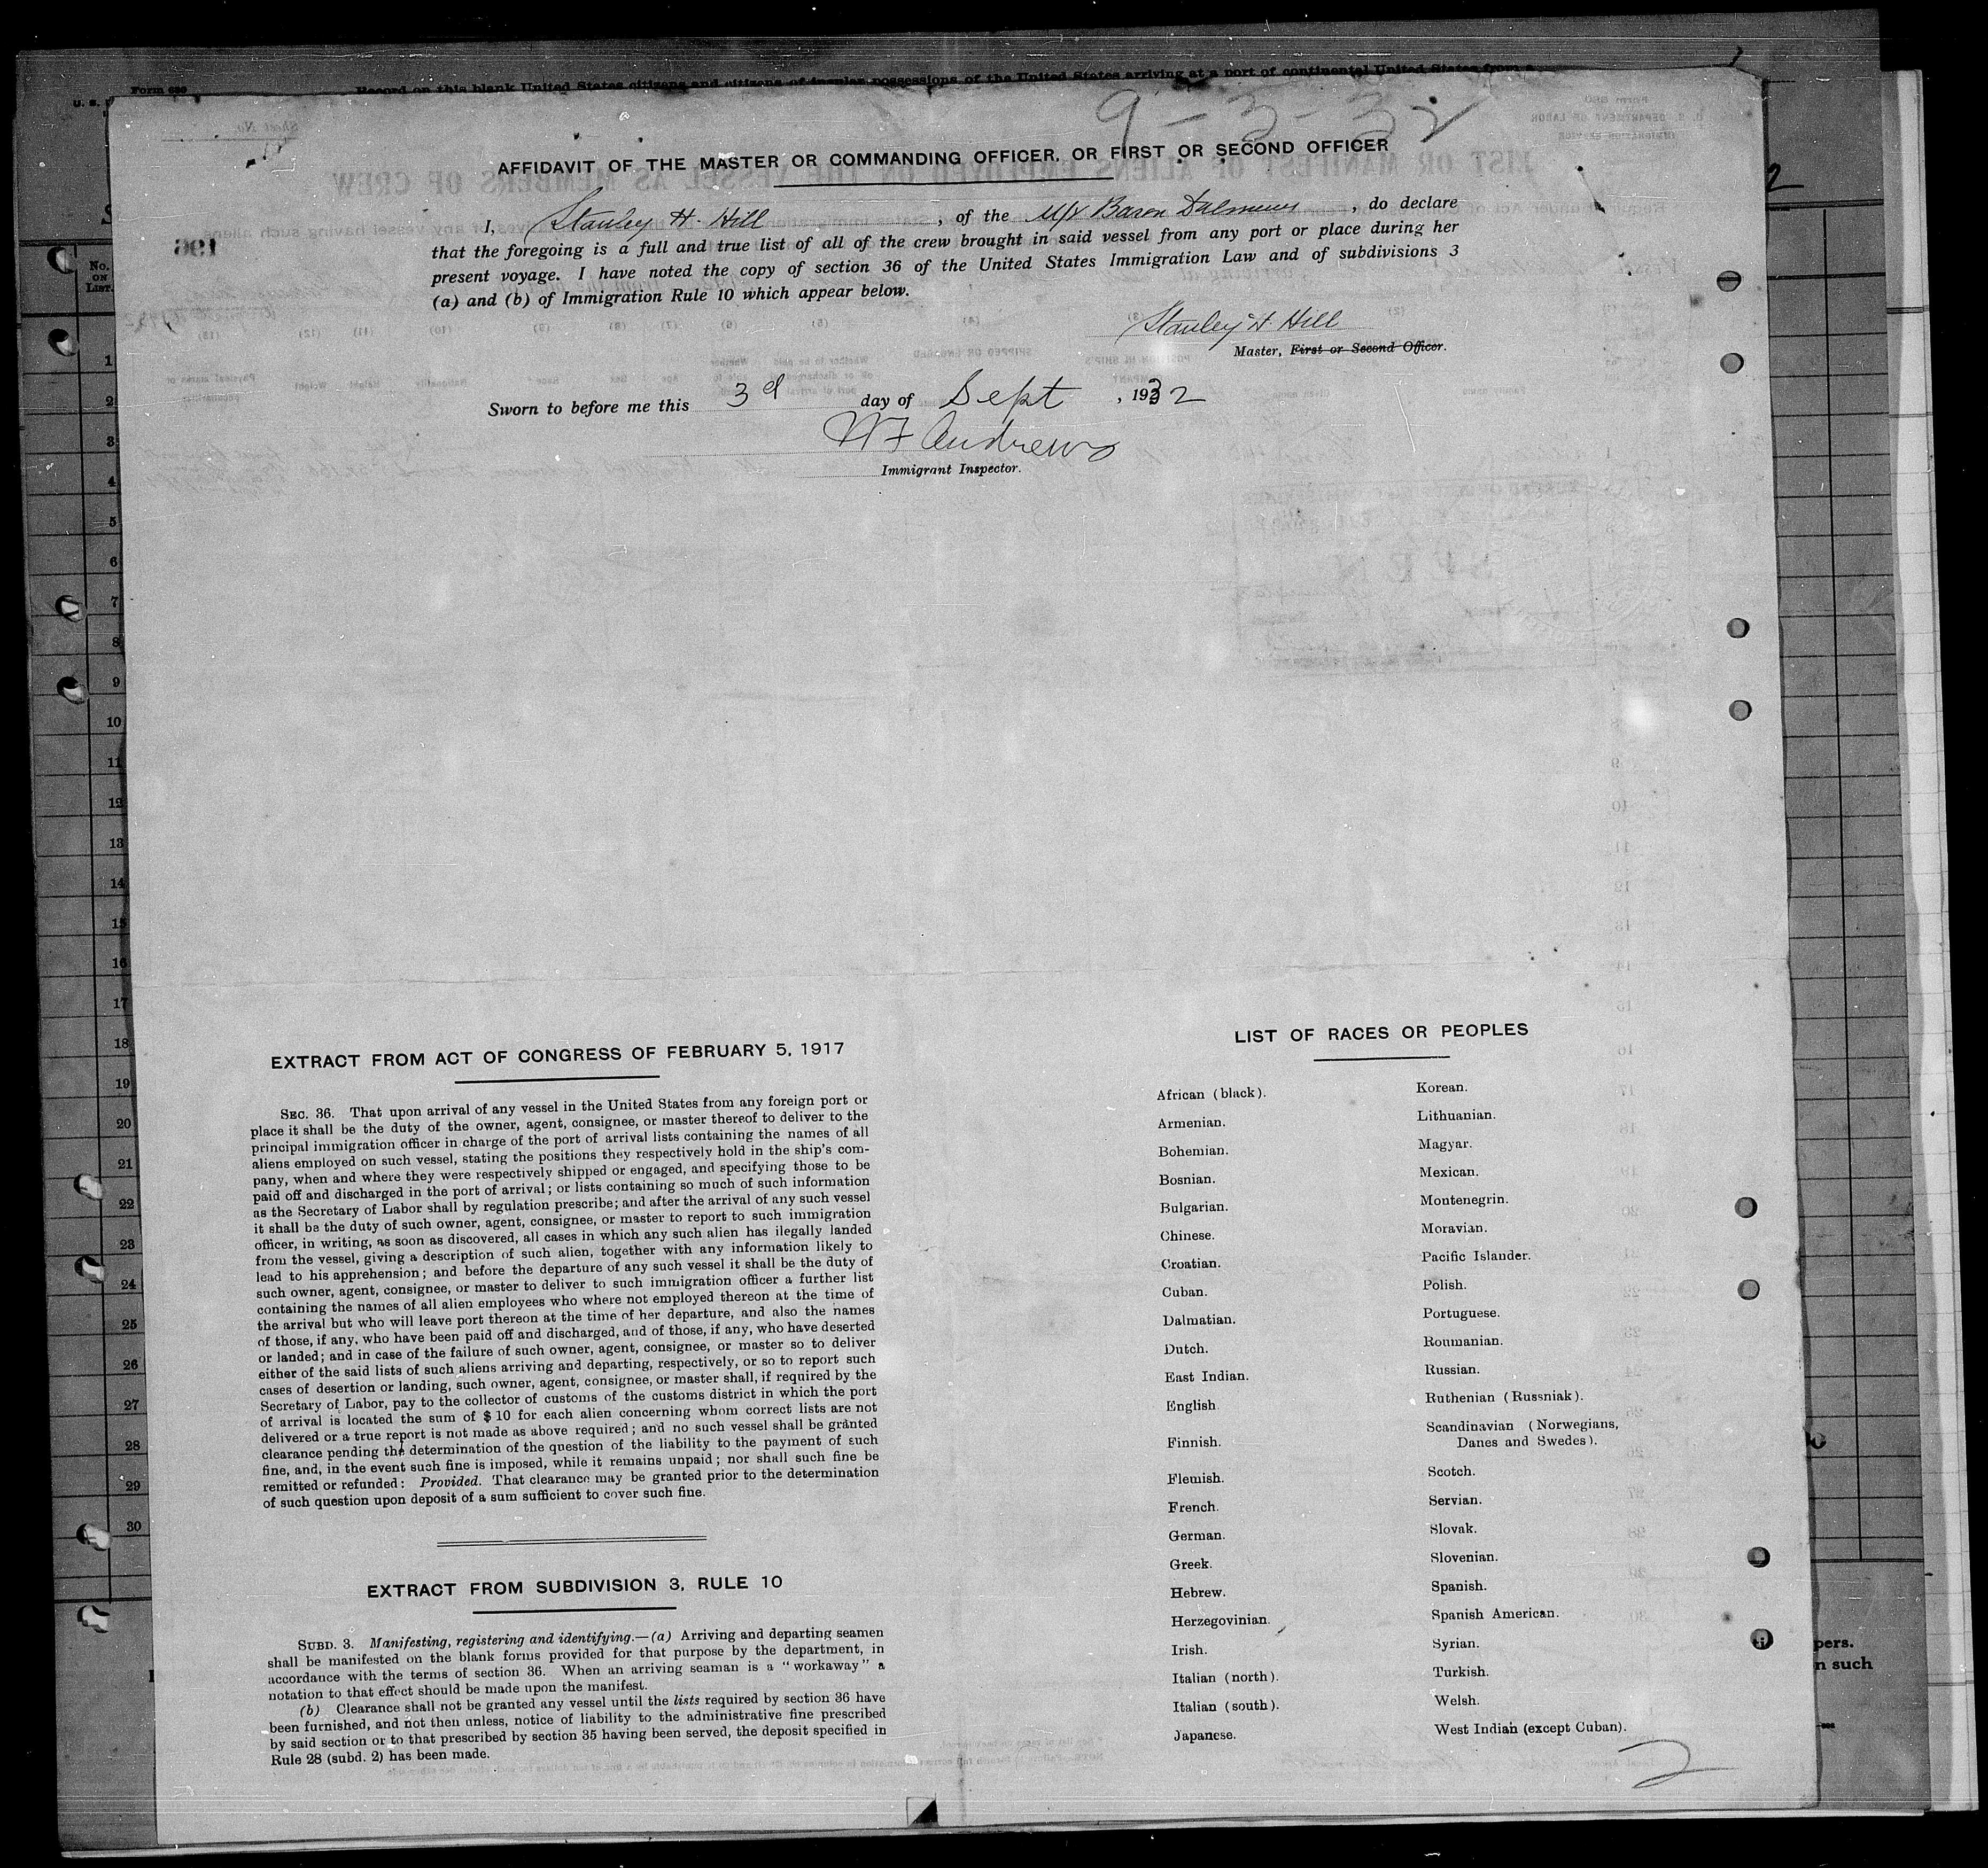 Form 680
Record on this blank United States citizens and citizens of insular possessions of the United States arriving at a port of continental United States from a
9-3-32
AFFIDAVIT OF THE MASTER OR COMMANDING OFFICER, OR FIRST OR SECOND OFFICER
I, Stanley H. Hill, of the Baron , do declare
that the foregoing is a full and true list of all of the crew brought in said vessel from any port or place during her
present voyage. I have noted the copy of section 36 of the United States Immigration Law and of subdivisions 3
(a) and (b) of Immigration Rule 10 which appear below.
Stanley H. Hill
Master, First or Second Officer.
Sworn to before me this 3d day of Sept, 1932
Andrews
Immigrant Inspector.
196
No.
ON
LIST.
1
2
3
4
5
6
7
8
9
10
11
12
13
14
15
16
17
18
19
20
21
22
23
24
25
26
27
28
29
30
EXTRACT FROM ACT OF CONGRESS OF FEBRUARY 5, 1917
SEC. 36. That upon arrival of any vessel in the United States from any foreign port or
place it shall be the duty of the owner, agent, consignee, or master thereof to deliver to the
principal immigration officer in charge of the port of arrival lists containing the names of all
aliens employed on such vessel, stating the positions they respectively hold in the ship's com-
pany, when and where they were respectively shipped or engaged, and specifying those to be
paid off and discharged in the port of arrival; or lists containing so much of such information
as the Secretary of Labor shall by regulation prescribe; and after the arrival of any such vessel
it shall be the duty of such owner, agent, consignee, or master to report to such immigration
officer, in writing, as soon as discovered, all cases in which any such alien has ilegally landed
from the vessel, giving a description of such alien, together with any information likely to
lead to his apprehension; and before the departure of any such vessel it shall be the duty of
such owner, agent, consignee, or master to deliver to such immigration officer a further list
containing the names of all alien employees who where not employed thereon at the time of
the arrival but who will leave port thereon at the time of her departure, and also the names
of those, if any, who have been paid off and discharged, and of those, if any, who have deserted
or landed; and in case of the failure of such owner, agent, consignee, or master so to deliver
either of the said lists of such aliens arriving and departing, respectively, or so to report such
cases of desertion or landing, such owner, agent, consignee, or master shall, if required by the
Secretary of Labor, pay to the collector of customs of the customs district in which the port
of arrival is located the sum of $10 for each alien concerning whom correct lists are not
delivered or a true report is not made as above required; and no such vessel shall be granted
clearance pending the determination of the question of the liability to the payment of such
fine, and, in the event such fine is imposed, while it remains unpaid; nor shall such fine be
remitted or refunded: Provided. That clearance may be granted prior to the determination
of such question upon deposit of a sum sufficient to cover such fine.
EXTRACT FROM SUBDIVISION 3, RULE 10
SUBD. 3. Manifesting, registering and identifying.—(a) Arriving and departing seamen
shall be manifested on the blank forms provided for that purpose by the department, in
accordance with the terms of section 36. When an arriving seaman is a "workaway" a
notation to that effect should be made upon the manifest.
(b) Clearance shall not be granted any vessel until the lists required by section 36 have
been furnished, and not then unless, notice of liability to the administrative fine prescribed
by said section or to that prescribed by section 35 having been served, the deposit specified in
Rule 28 (subd. 2) has been made.
LIST OF RACES OR PEOPLES
African (black).
Armenian.
Bohemian.
Bosnian.
Bulgarian.
Chinese.
Croatian.
Cuban.
Dalmatian.
Dutch.
East Indian.
English.
Finnish.
Flemish.
French.
German.
Greek.
Hebrew.
Herzegovinian.
Irish.
Italian (north).
Italian (south).
Japanese.
Korean.
Lithuanian.
Magyar.
Mexican.
Montenegrin.
Moravian.
Pacific Islander.
Polish.
Portuguese.
Roumanian.
Russian.
Ruthenian (Russniak).
Scandinavian (Norwegians,
Danes and Swedes).
Scotch.
Servian.
Slovak.
Slovenian.
Spanish.
Spanish American.
Syrian.
Turkish.
Welsh.
West Indian (except Cuban).
2
pers.
n such